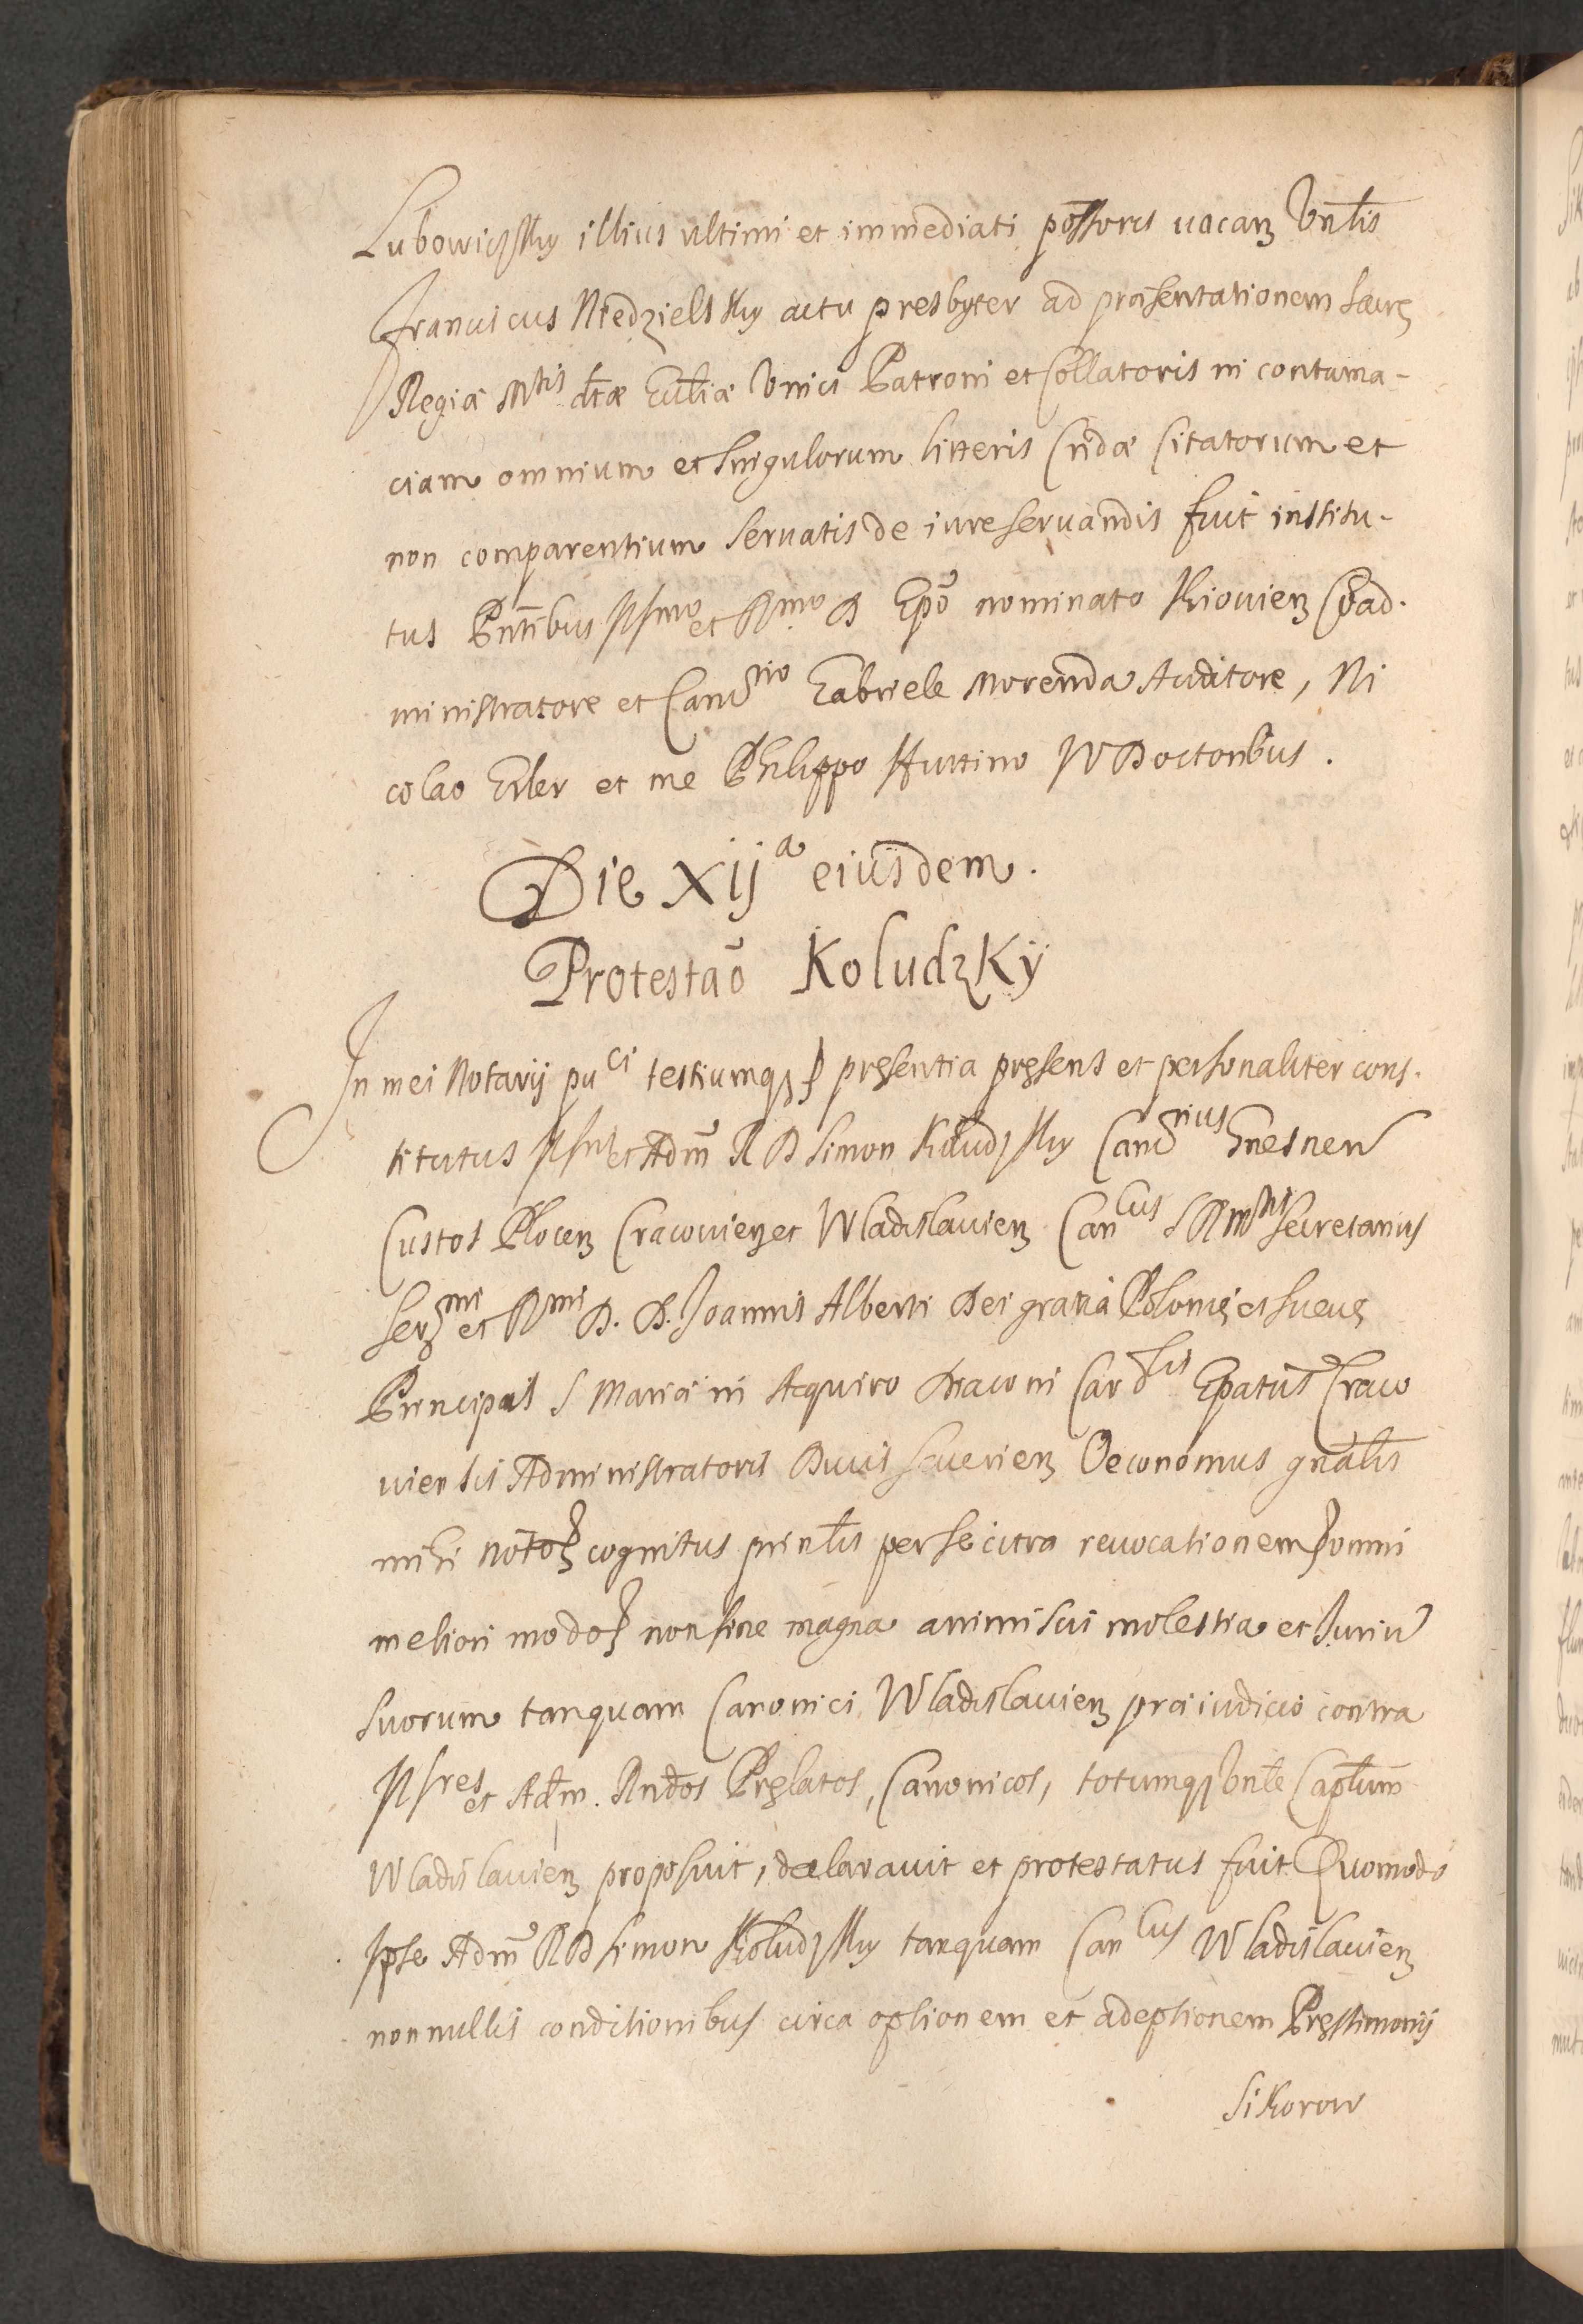 Lubowiczsky illius ultimi et immediati poss̄oris uacan̄ Vn̄lis
Francicus Niedzielsky actu presbyter ad præsentationem Sacrę
Regiæ Mtis dt̄æ Ecl̄iæ Vnici Patroni et Collatoris in contuma-
ciam omnium et singulorum litteris Cridæ Citatorum et
non comparentium servatis de iure servandis fuit institu-
tus Pn̄tibus Illmo et Rmo D Ep̄o nominato Kiouien̄ Ad-
ministratore et Canrio Gabriele Morenda Auditore, Ni
colao Erler et me Philippo Huttino IV Doctoribus.
Die Xija eiusdem.
Protestaō Koludzkÿ
In mei Notarij puci testiumq presentia pręsens et personaliter cons-
titutus Illris et Adm̄ R D Simon Koludzky Canrius Gnesnen
Custos Plocen̄ Cracouien et Wladislauien̄ Cancus S R Mtis Secretarius
Sermi et Rmi D. D. Joannis Alberti Dei gratia Polonię et Suecię
Principis S Mariæ in Aquiro Diaconi Cardlis Epatus Craco
uiensis Administratoris Ducis Seuerien̄ Oeconomus gn̄alis
mihi Notō cognitus prin̄lis per se citra reuocationem omni
meliori modo non sine magna animi sui molestia et Juriū
suorum tanquam Canonici Wladislauien̄ præiudicio contra
Illres et Adm. Rndos Pręlatos, Canonicos, totumq Vn̄le Capl̄um
Wladislauien̄ proposuit, declarauit et protestatus fuit Quomodo
Ipse Adm̄ R D Simon Koludzky tanquam Cancus Wladislauien̄
nonnullis conditionibus circa optionem et adeptionem Pręstimonij
Sikorow